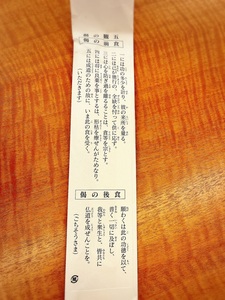 一には功の多少を計り、彼の来処を量る。
二には己が徳行の、全缺を忖って供に応ず。
三には心を防ぎ過を離るることは、貪等を宗とす。
四には正に良薬を事とするは、形枯を療ぜんがためなり。
五には成道のための故に、いま此の食を受く。
(いただきます)
食後の偈
願わくは此の功徳を以て、
普く一切に及ぼし、
我等と衆生と、皆共に
仏道を成ぜんことを。
(ごちそうさま)